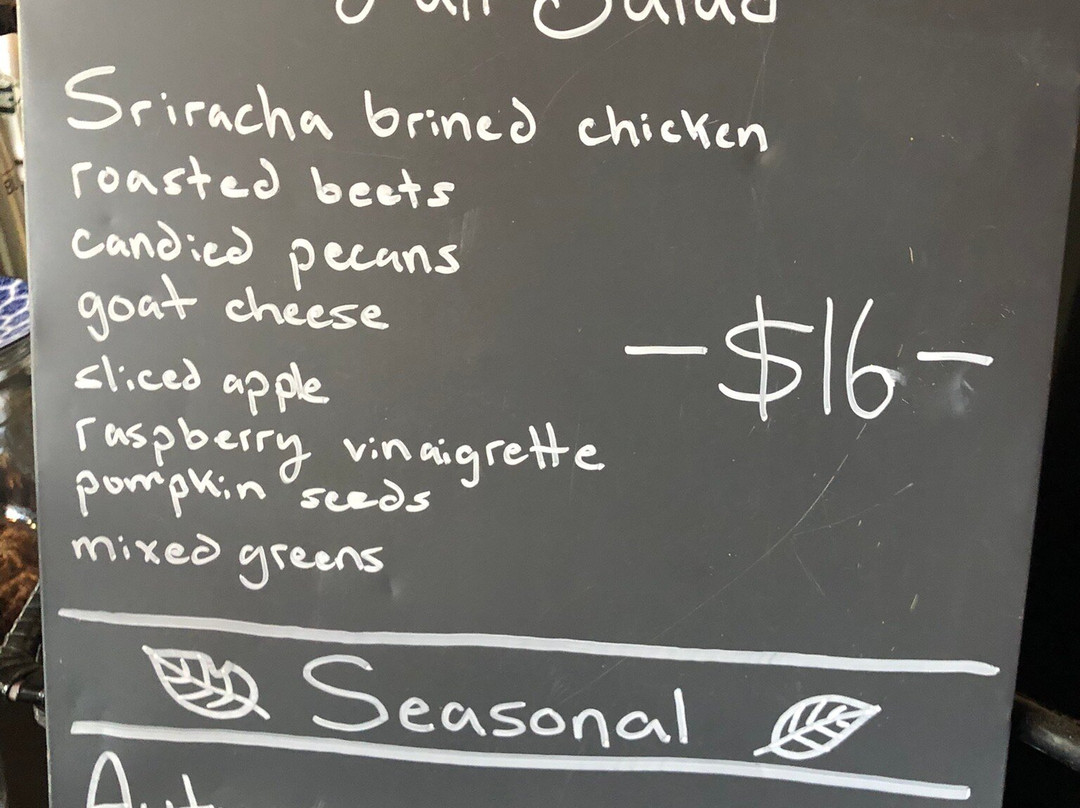 Fall Salad
Sriracha brined chicken
roasted beets
candied pecans
goat cheese
— $16 —
sliced apple
raspberry vinaigrette
pumpkin seeds
mixed greens
Seasonal